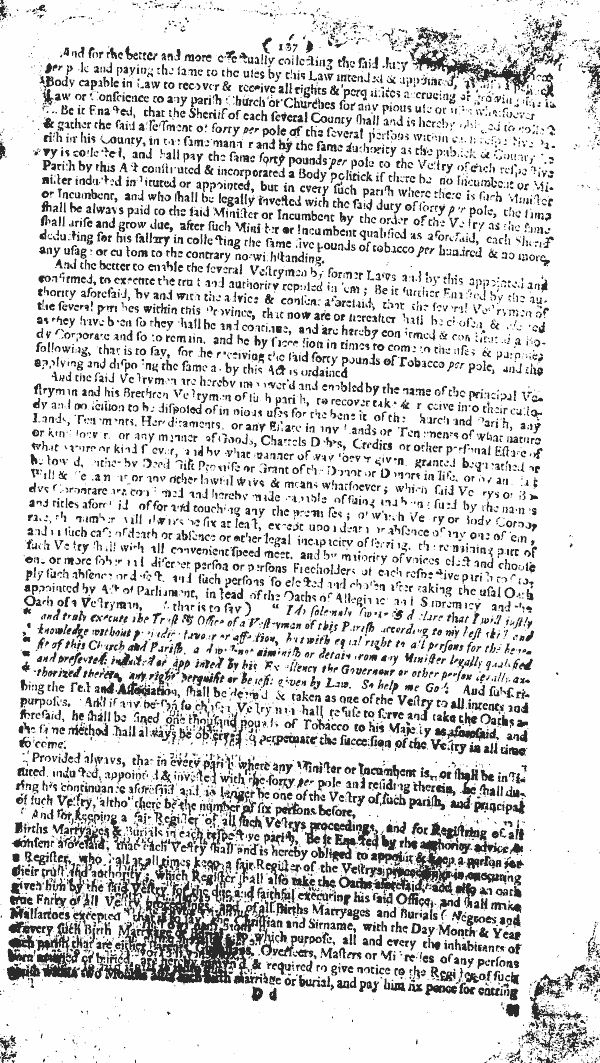 ( 137 )
And for the better and more effectually collecting the said duty of
per pole and paying the same to the uses by this Law intended & appointed,
Body capable in Law to recover & receive all rights & perquisites accruing or growing due in
Law or Conscience to any parish Church or Churches for any pious use or uses whatsoever
Be it Enacted, that the Sheriff of each several County shall and is hereby obliged to collect
& gather the said assessment of forty per pole of the several persons within each respective pa-
rish in his County, in the same manner and by the same authority as the publick & County le-
vy is collected, and shall pay the same forty pounds per pole to the Vestry of each respective
Parish by this Act constituted & incorporated a Body politick if there be no Incumbent or Mi-
nister inducted instituted or appointed, but in every such parish where there is such Minister
or Incumbent, and who shall be legally invested with the said duty of forty per pole, the same
shall be always paid to the said Minister or Incumbent by the order of the Vestry as the same
shall arise and grow due, after such Minister or Incumbent qualified as aforesaid, each Sheriff
deducting for his sallary in collecting the same five pounds of tobacco per hundred & no more,
any usage or custom to the contrary notwithstanding.
And the better to enable the several Vestrymen by former Laws and by this appointed and
confirmed, to execute the trust and authority reposed in 'em; Be it further Enacted by the au-
thority aforesaid, by and with the advice & consent aforesaid, that the several Vestrymen of
the several parishes within this Province, that now are or hereafter shall be chosen, & elected
as they have been so they shall be and continue, and are hereby confirmed & constituted a Bo-
dy Corporate and so to remain, and be by succession in times to come to the uses & purposes
following, that is to say, for the receiving the said forty pounds of Tobacco per pole, and the
applying and disposing the same as by this Act is ordained
And the said Vestrymen are hereby impower'd and enabled by the name of the principal Ve-
stryman and his Brethren Vestrymen of such parish, to recover take & receive into their custo-
dy and possession to be disposed of in pious uses for the benefit of the Church and Parish, any
Lands, Tenements, Hereditaments, or any Estate in any Lands or Tenements of what nature
or kind soever, or any manner of Goods, Chattels Debts, Credits or other personal Estate of
what nature or kind soever, and by what manner of way soever given granted bequeathed or
bestowed, either by Deed Gift Promise or Grant of the Donor or Donors in life, or by an last
Will & Testament or any other lawful ways & means whatsoever; which said Vestrys or Bo-
dys Corporate are confirmed and hereby made capable of suing and being sued by the names
and titles aforesaid of for and touching any the premisses; of which Vestry or Body Corpo-
rate, the number shall always be six at least, except upon death or absence of any one of 'em,
and in such case of death or absence or other legal incapacity of serving, the remaining part of
such Vestry shall with all convenient speed meet, and by majority of voices elect and choose
one or more sober and discreet person or persons Freeholders of each respective parish to sup-
ply such absence or defect, and such persons so elected and chosen after taking the usual Oath
appointed by Act of Parliament, instead of the Oaths of Allegiance and Supremacy and the
Oath of a Vestryman, (that is to say) " I do solemnly swear & declare that I will justly
" and truly execute the Trust & Office of a Vestryman of this Parish according to my best skill and
" knowledge without prejudice favour or affection, but with equal right to all persons for the bene-
" fit of this Church and Parish, and will not diminish or detain from any Minister legally qualified
" and presented, inducted or appointed by his Excellency the Governour or other person legally au-
" thorized thereto, any right perquisite or benefit given by Law. So help me God. And subscri-
bing the Test and Association, shall be deemed & taken as one of the Vestry to all intents and
purposes. And if any person so chosen Vestryman shall refuse to serve and take the Oaths a-
foresaid, he shall be fined one thousand pounds of Tobacco to his Majesty as aforesaid, and
the same method shall always be observed to perpetuate the succession of the Vestry in all time
to come.
Provided always, that in every parish where any Minister or Incumbent is, or shall be insti-
tuted, inducted, appointed & invested with the forty per pole and residing therein, he shall du-
ring his continuance aforesaid and no longer be one of the Vestry of such parish, and principal
of such Vestry, altho' there be the number of six persons before,
And for keeping a fair Register of all such Vestrys proceedings, and for Registring of all
Births Marryages & Burials in each respective parish, Be it Enacted by the authority advice &
consent aforesaid, that each Vestry shall and is hereby obliged to appoint & keep a person for
a Register, who shall at all times keep a fair Register of the Vestrys proceedings in executing
their trust and authority; which Register shall also take the Oaths aforesaid, and also an oath
given him by the said Vestry for the due and faithful executing his said Office, and shall make
true Entry of all Vestry proceedings, and of all Births Marryages and Burials (Negroes and
Mallattoes excepted) that is to say, the Christian and Sirname, with the Day Month & Year
of every such Birth Marryage for which purpose, all and every the inhabitants of
each parish that are either Overseers, Masters or Mistresses of any persons
born married or buried, are hereby & required to give notice to the Register of such
parish within two Months after such birth marriage or burial, and pay him six pence for entring
D d